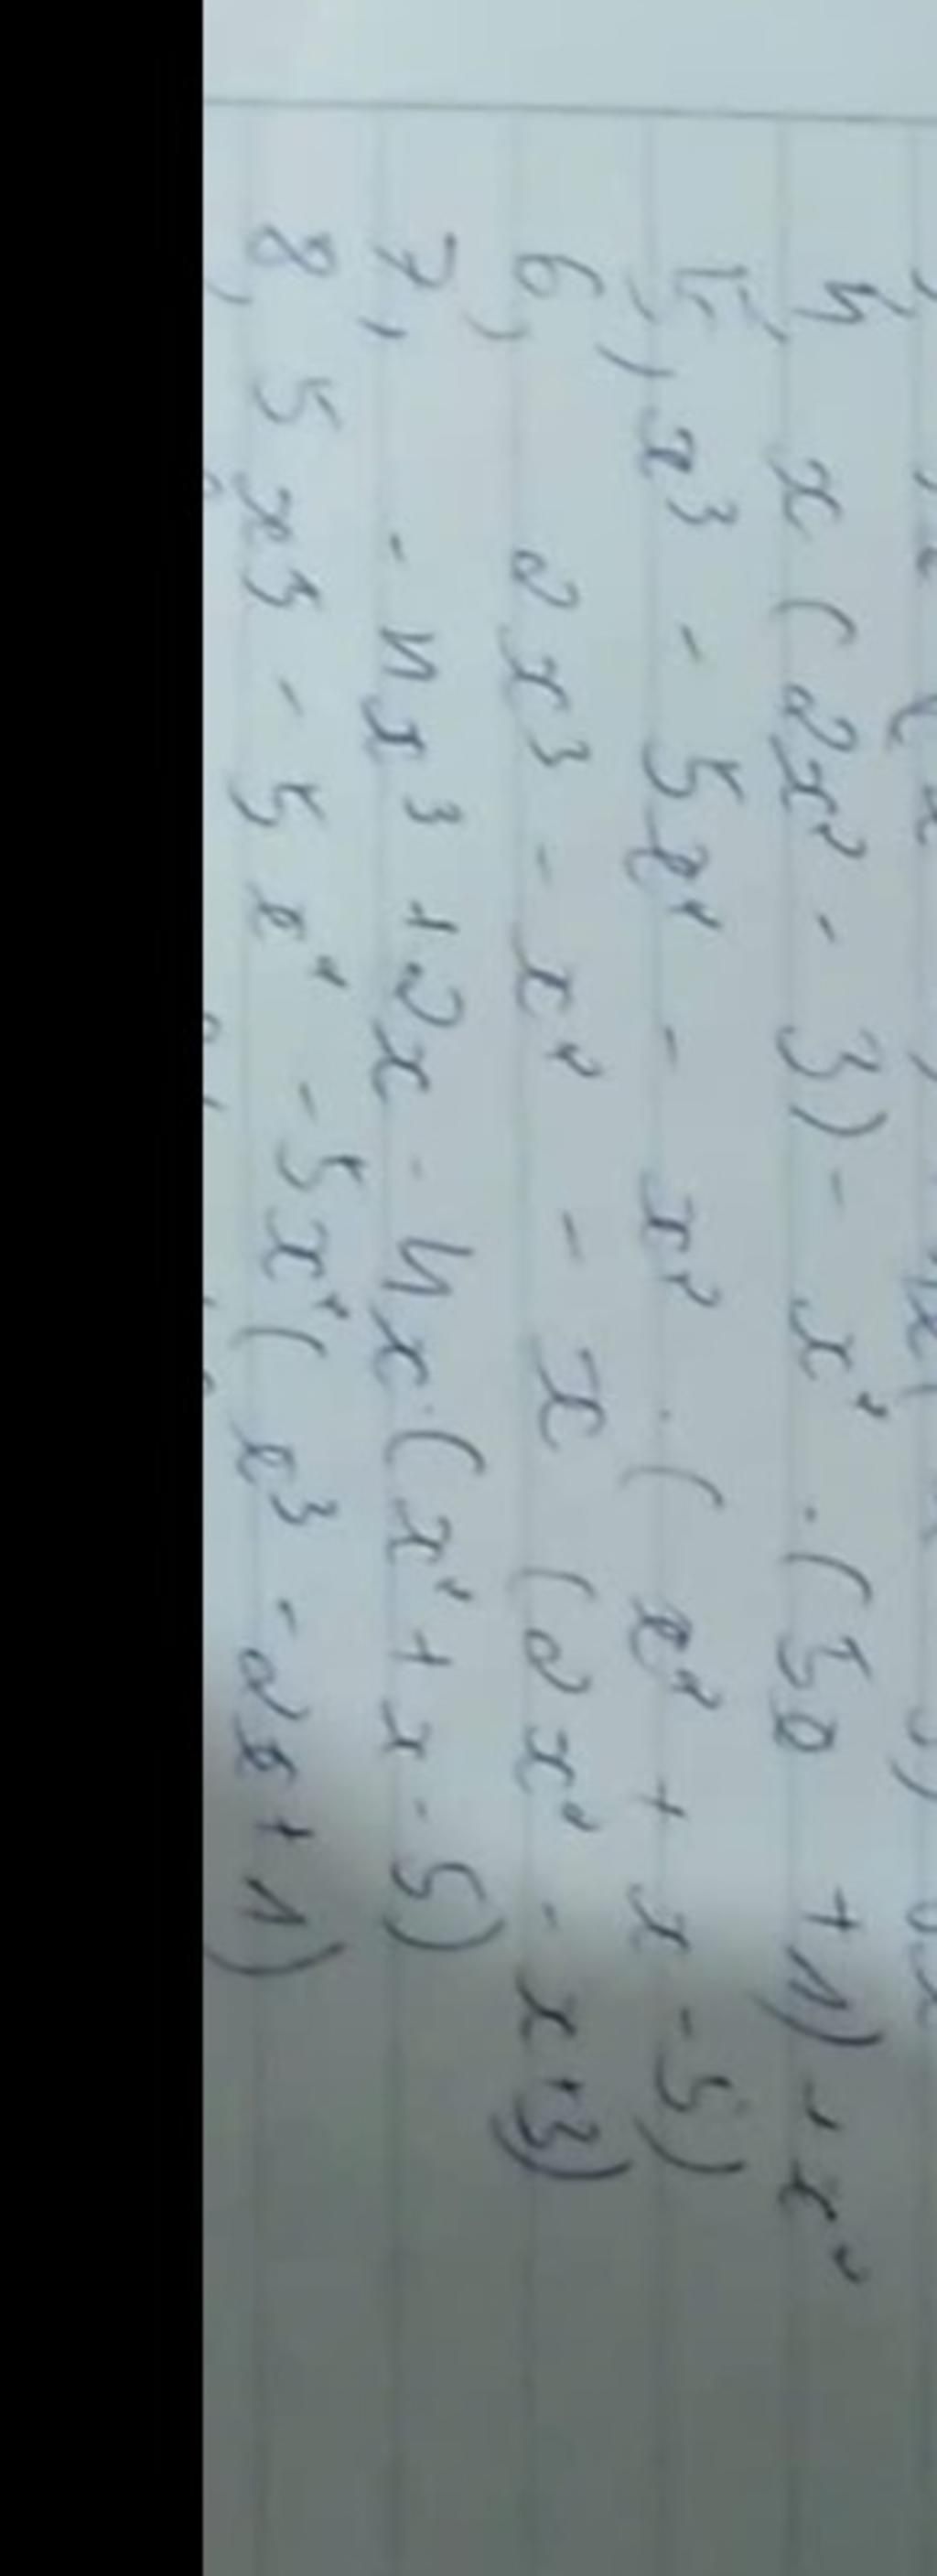 4, x (2x² - 3) - x² . (5x + 1) + x²
5, x³ - 5x² - x² . ( x² + x - 5)
6, 2x³ - x² - x (2x² - x + 3)
7, - 4x³ + 2x - 4x . (x² + x - 5)
8, 5x³ - 5x² - 5x² ( x³ - 2x + 1)